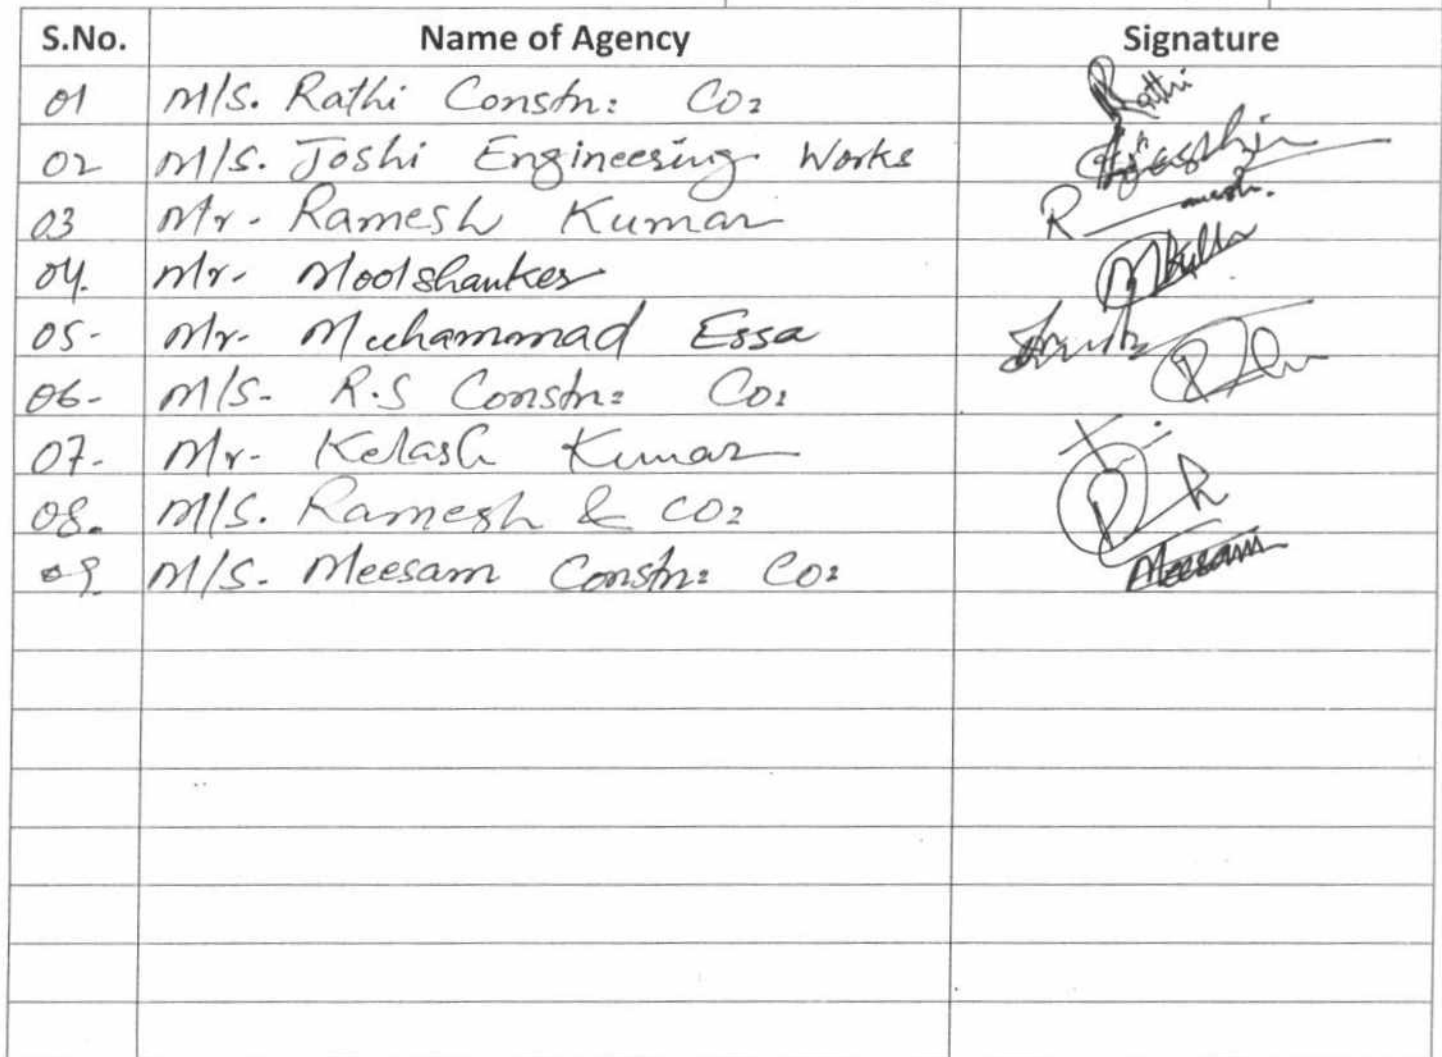 S.No. Name of Agency Signature
01 M/S. Rathi Constn: Co: Rathi
02 M/S. Joshi Engineering Works
03 Mr. Ramesh Kumar R amesh.
04. Mr. Moolshanker
05- Mr. Muhammad Essa
06- M/S- R.S Constn: Co:
07- Mr- Kelash Kumar
08. M/S. Ramesh & CO:
09. M/S. Meesam Constn: Co: Meesam